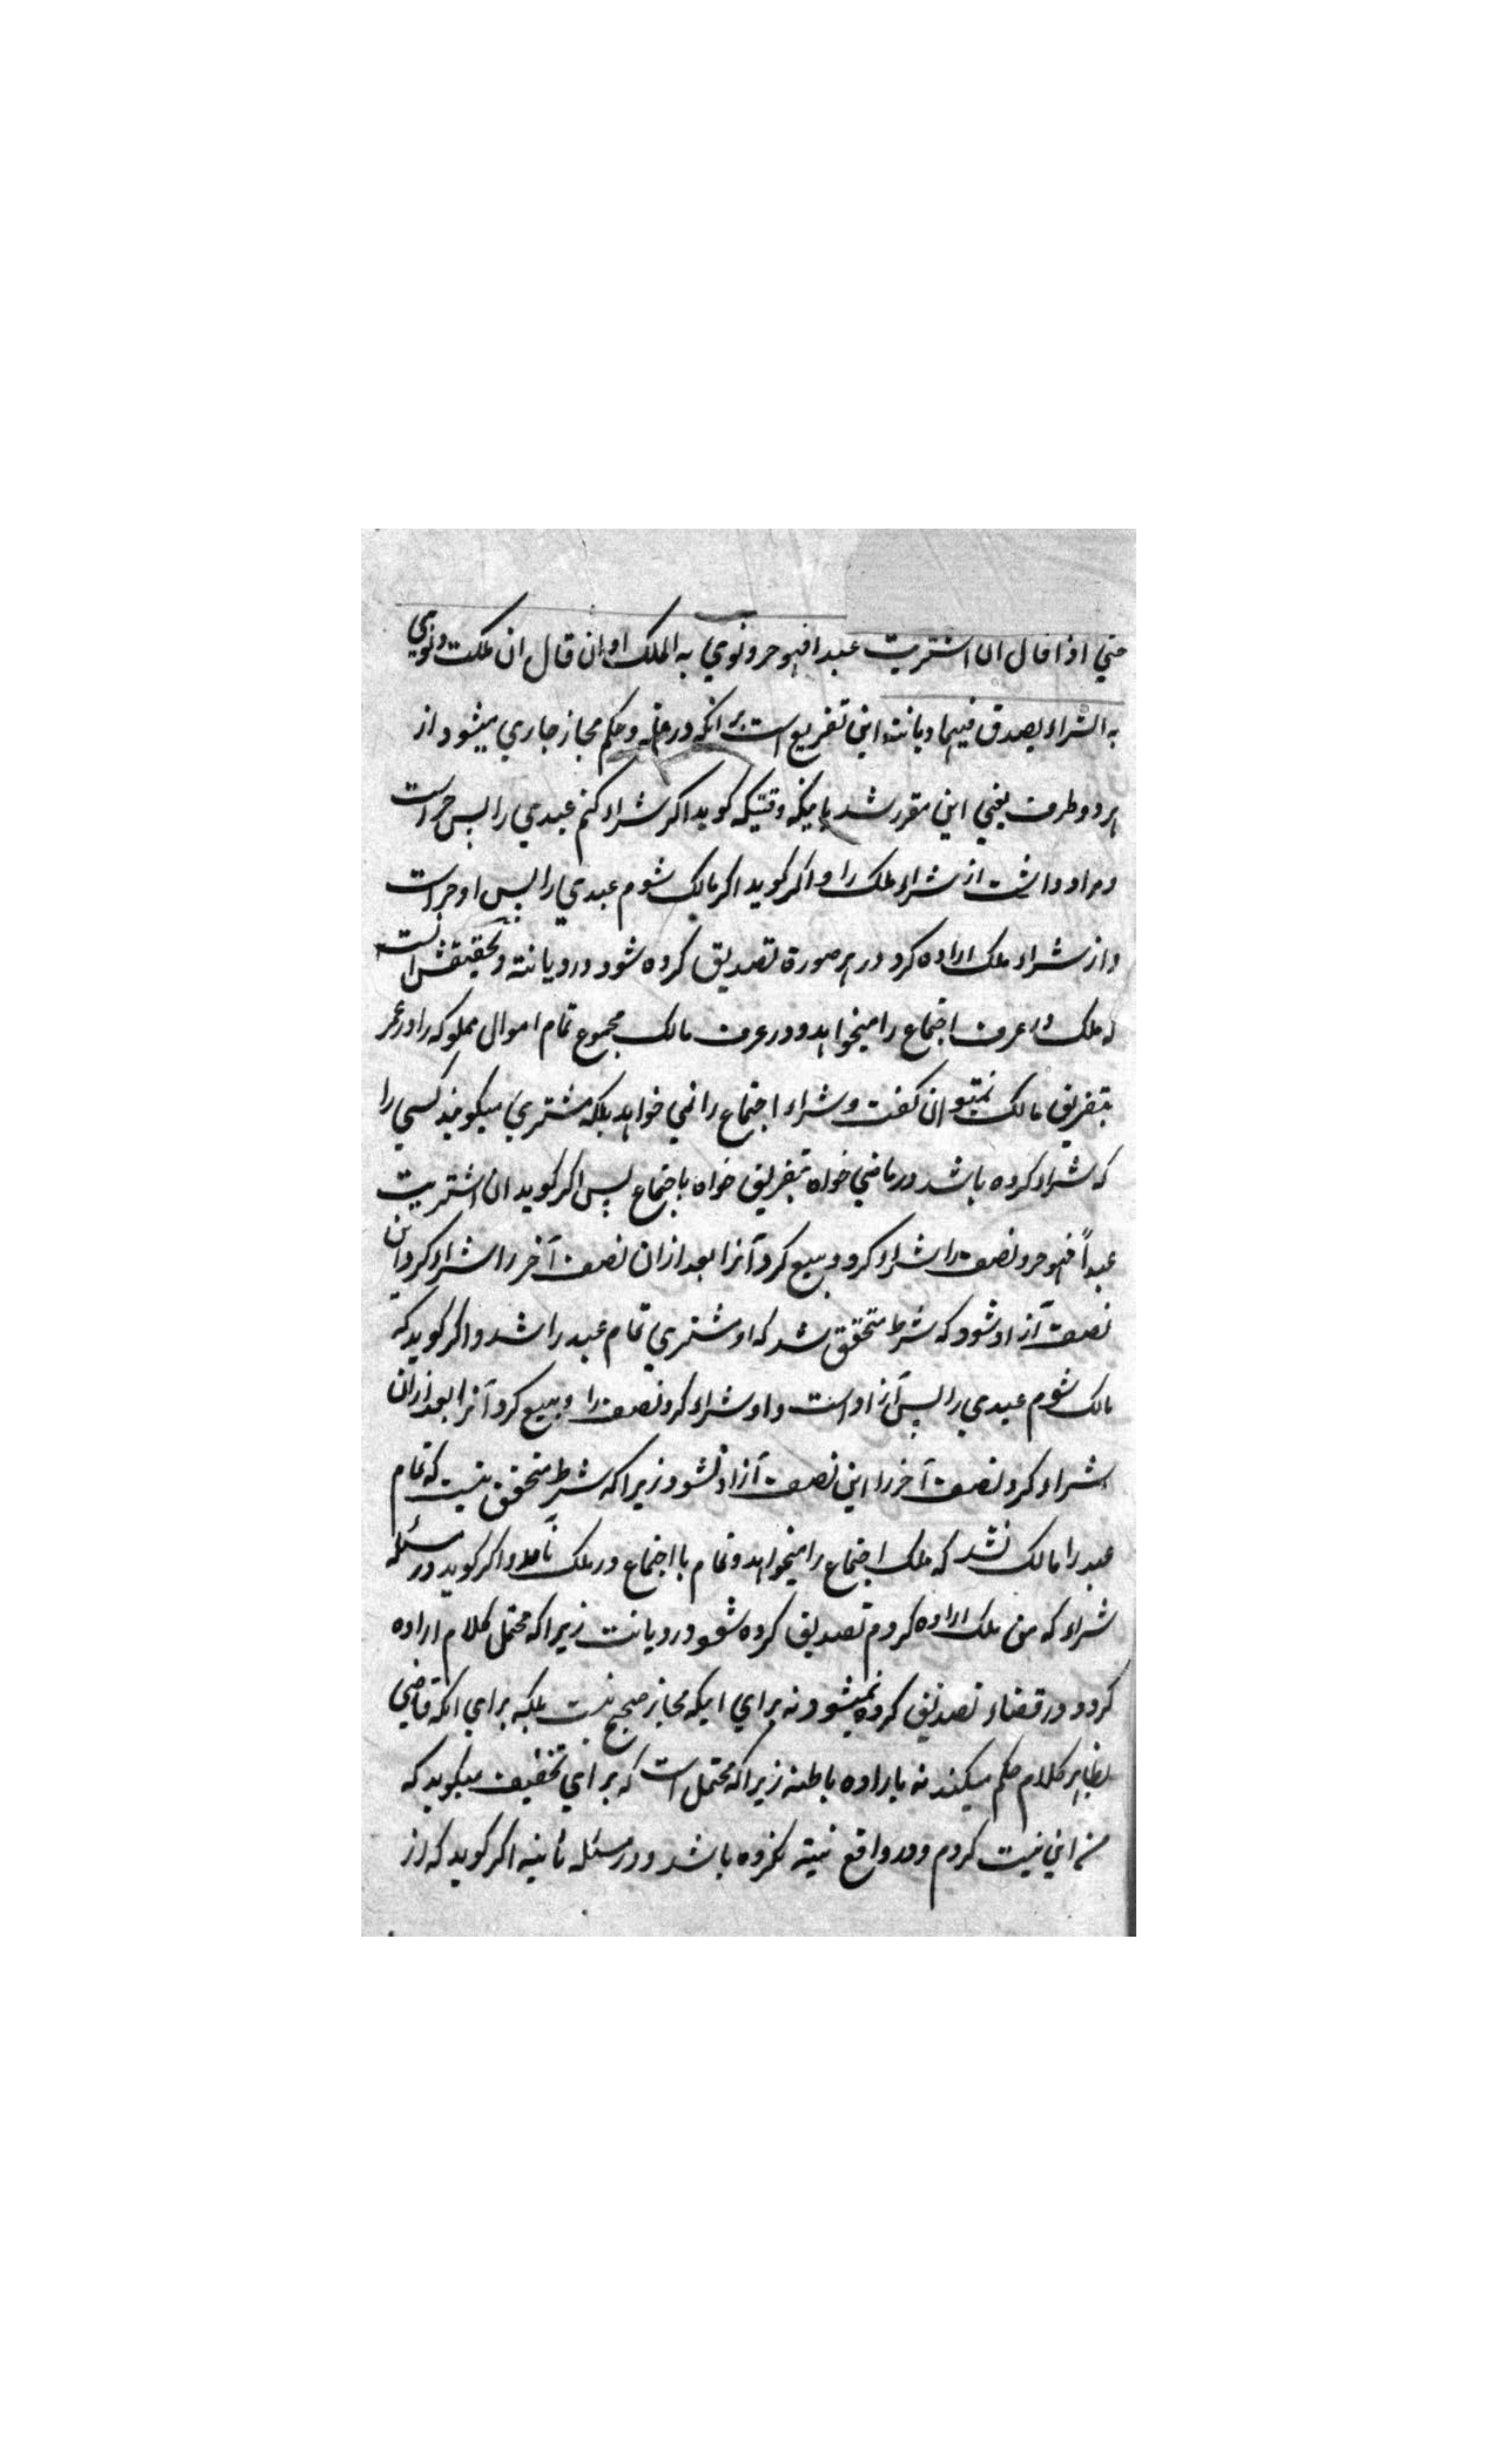 حتي اذا قال ان اشتريت عبدا فهو حر و نوي به الملك او ان قال ان ملكت و نوي
به الشراء يصدق فيهما ديانته اين تفريع است بر انكه در عله و حكم مجاز جاري ميشود از
هر دو طرف يعني اين مقرر شد باينكه وقتيكه كويد اكر شراء كنم عبدي را پس حر است
و مراد داشت از شراء ملك را و اكر كويد اكر مالك شوم عبدي را پس او حر است
و از شراء ملك اراده كرد در هر صورة تصديق كرده شود در ديانته و تحقيقش انست
كه ملك در عرف اجتماع را ميخواهد و در عرف مالك مجموع تمام اموال مملوكه را در عمر
بتفريق مالك نميتوان كفت و شراء اجتماع را نمي خواهد بلكه مشتري ميكويند كسي را
كه شراء كرده باشد در ماضي خواه بتفريق خواه باجتماع پس اكر كويد ان اشتريت
عبداً فهو حر و نصف را شراء كرد و بيع كرد آنرا بعد ازان نصف آخر را شراء كرد اين
نصف آزاد شود كه شرط متحقق شد كه او مشتري تمام عبد را شد و اكر كويد كه
مالك شوم عبدي را پس آزاد است و او شراء كرد نصف را و بيع كرد آنرا بعد ازان
شراء كرد نصف آخر را اين نصف آزاد نشود زيرا كه شرط متحقق نيست كه تمام
عبد را مالك نشد كه ملك اجتماع را ميخواهد و تمام با اجتماع در ملك نامد و اكر كويد در مسئله
شراء كه من ملك اراده كردم تصديق كرده شود در ديانت زيرا كه محتمل كلام اراده
كرد و در قضاء تصديق كرده نميشود نه براي اينكه مجاز صحيح نيست بلكه براي انكه قاضي
بظاهر كلام حكم ميكند نه باراده باطنه زيرا كه محتمل است كه براي تخفيف ميكويد كه
من اين نيت كردم و در واقع نيته نكرده باشد و در مسئله ثانيه اكر كويد كه از